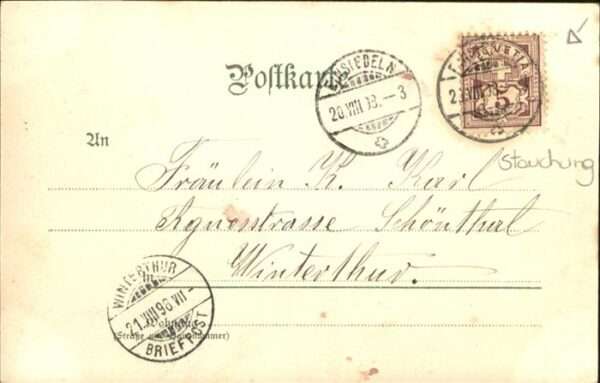 Postkarte
EINSIEDELN
20.VIII.98.—3
HELVETIA
5
An
Stauchung
Fräulein K. Karl
Agnesstrasse Schönthal
Winterthur.
WINTERTHUR
21.VIII.98 VII-
BRIEFPOST
Wohnung
(Straße und Hausnummer)